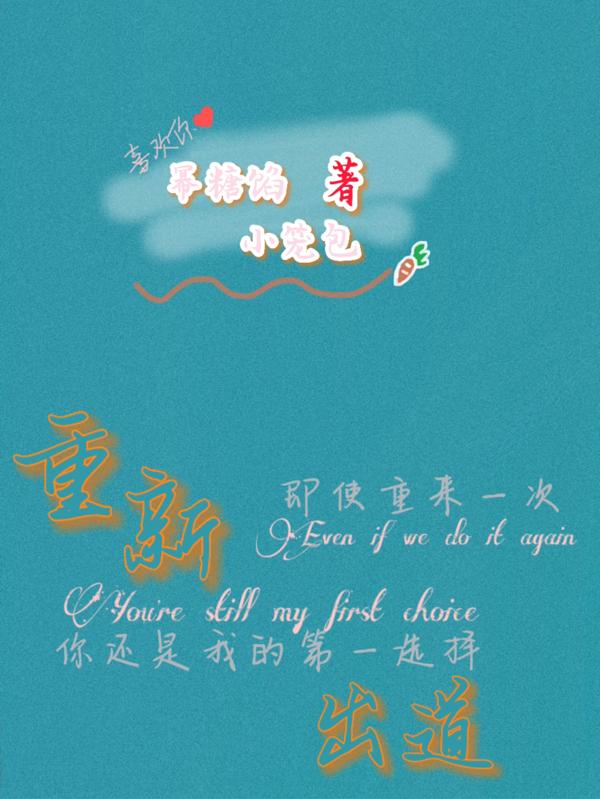 喜欢你
幂糖馅 著
小笼包
重新
即使重来一次
Even if we do it again
You're still my first choice
你还是我的第一选择
出道